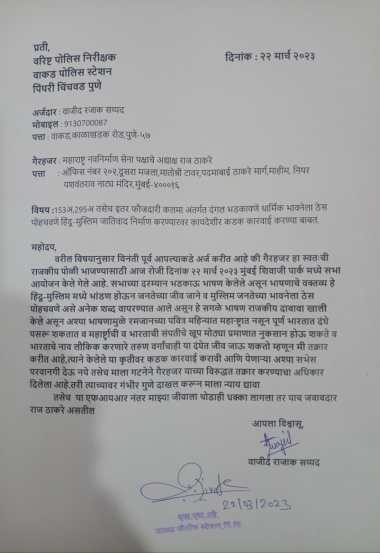 प्रती,
वरिष्ट पोलिस निरीक्षक
वाकड पोलिस स्टेशन
पिंपरी चिंचवड पुणे
दिनांक : २२ मार्च २०२३
अर्जदार : वाजीद रजाक सय्यद
मोबाइल : 9130700087
पत्ता : वाकड,काळाखडक रोड,पुणे-५७
गैरहजर : महाराष्ट्र नवनिर्माण सेना पक्षाचे अद्यक्ष राज ठाकरे
पत्ता : ऑफिस नंबर २०२,दुसरा मजला,मातोश्री टावर,पदमाबाई ठाकरे मार्ग,माहीम, नियर
यशवंतराव नाट्य मंदिर,मुंबई-४०००१६
विषय :153अ,295अ तसेच इतर फौजदारी कलमा अंतर्गत दंगल भडकावणे धार्मिक भावनेला ठेस
पोहचवणे हिंदु-मुस्लिम जातिवाद निर्माण करण्यारवर कायदेशीर कडक कारवाई करण्या बाबत.
महोदय,
वरील विषयानुसार विनंती पूर्व आपत्याकडे अर्ज करीत आहे की गैरहजर हा स्वतःची
राजकीय पोळी भाजण्यासाठी आज रोजी दिनांक २२ मार्च २०२३ मुंबई शिवाजी पार्क मध्ये सभा
आयोजन केले गेले आहे. सभाच्या दरम्यान भडकाऊ भाषण केलेले असून भाषणाचे वक्तव्य हे
हिंदु-मुस्लिम मध्ये भांडण होऊन जनतेच्या जीव जाने व मुस्लिम जनतेच्या भावनेला ठेस
पोहचवणे असे अनेक शब्द वापरण्यात आले असून हे सगळे भाषण राजकीय दाबावा खाली
केले असून अश्या भाषणामुळे रमजानच्या पवित्र महिन्यात महाराष्ट्रात नसून पूर्ण भारतात दंगे
पसरू शकतात व महाराष्ट्रची व भारताची संपतीचे खूप मोठ्या प्रमाणात नुकसान होऊ शकते व
भारताचे नाव लौकिक करणारे तरुण वर्गाचाही या दंगेत जीव जाऊ शकतो म्हणून मी तक्रार
करीत आहे,त्याने केलेले या कृतीवर कडक कारवाई करावी आणि येणाऱ्या अश्या सभेस
परवानगी देऊ नये तसेच माला गटनेने गैरहजर याच्या विरुद्धत तक्रार करण्याचा अधिकार
दिलेला आहे.तरी त्याच्यावर गंभीर गुणे दाखल करून माला न्याय द्यावा
तसेच या एफआयआर नंतर माझ्या जीवाला थोडाही धक्का लागला तर याच जवाबदार
राज ठाकरे असतील
आपला विश्वासू,
वाजीद राजाक सय्यद
22/03/2023